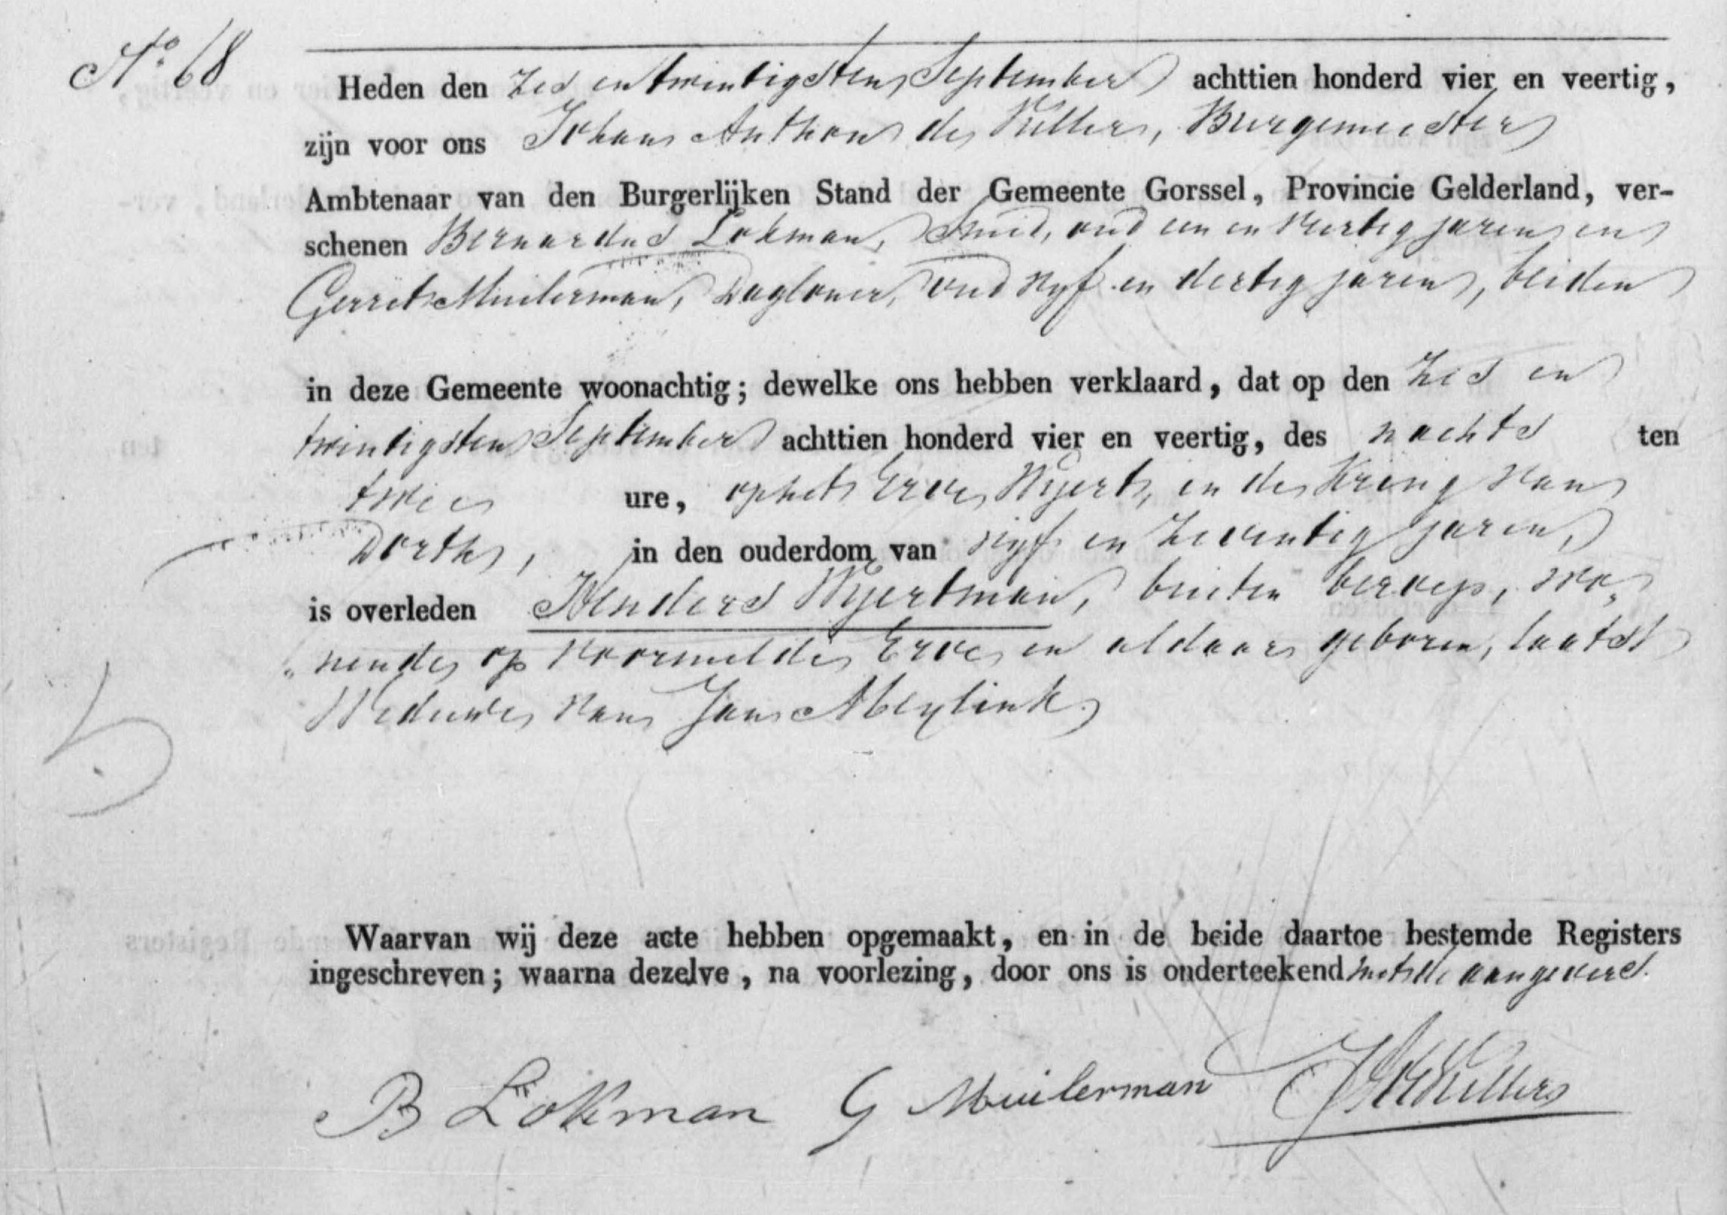 No. 68
Heden den zes en twintigsten September achttien honderd vier en veertig,
zijn voor ons Johan Anthon de Killer, Burgemeester
Ambtenaar van den Burgerlijken Stand der Gemeente Gorssel, Provincie Gelderland, ver-
schenen Bernardus Lokman, Smid, oud een en veertig jaren en
Gerrit Muilerman, Dagloner, oud vyf en dertig jaren, beiden
in deze Gemeente woonachtig; dewelke ons hebben verklaard, dat op den zes en
twintigsten September achttien honderd vier en veertig, des nachts ten
twee ure, op het Erve Wyert, in de Kring van
Dorth, in den ouderdom van vyf en zeventig jaren,
is overleden Henders Wyertman, buiten beroep, wo„
„nende op voormelde Erve en aldaar geboren, laatst
Weduwe van Jan Meylink.
Waarvan wij deze acte hebben opgemaakt, en in de beide daartoe bestemde Registers
ingeschreven; waarna dezelve, na voorlezing, door ons is onderteekend met de aangevers.
B Lokman G Muilerman